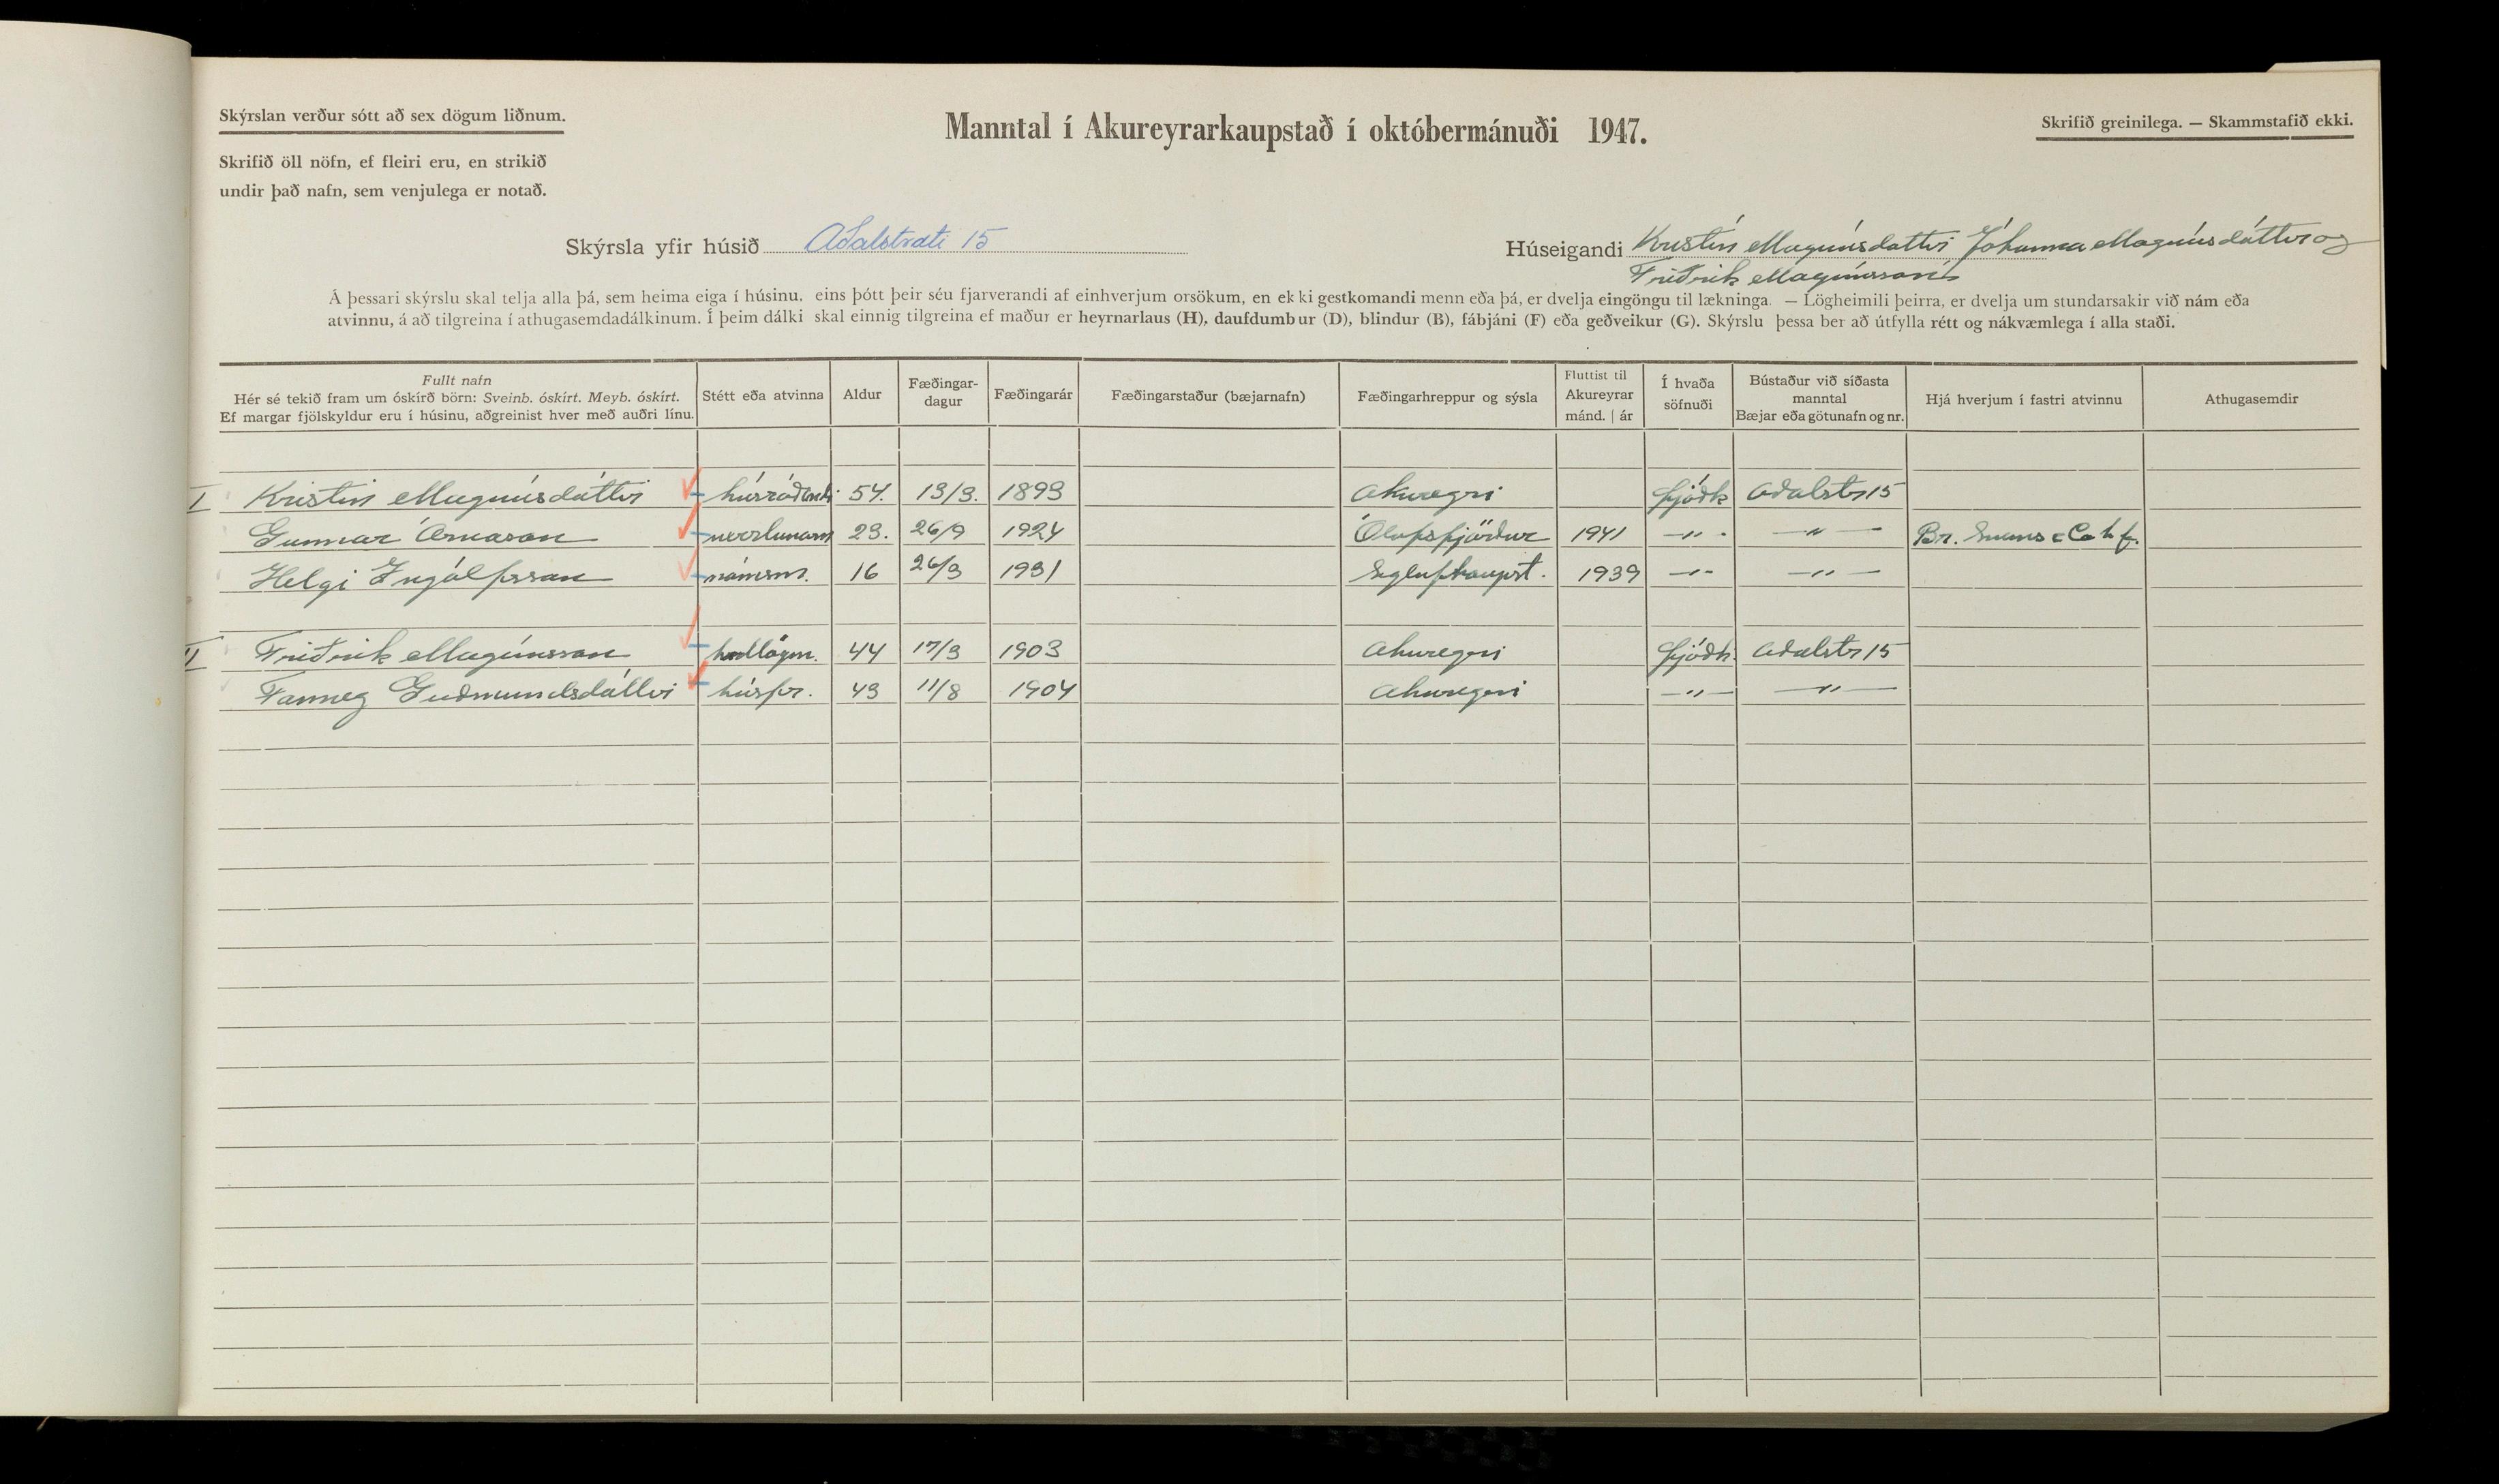 Skýrslan verður sótt að sex dögum liðnum.
Skrifið öll nöfn, ef fleiri eru, en strikið
undir það nafn, sem venjulega er notað.
Manntal í Akureyrarkaupstað í októbermánuði 1947.
Skrifið greinilega. — Skammstafið ekki.
Skýrsla yfir húsið Aðalstræti 15
Húseigandi Kristín Magnúsdóttir Jóhanna Magnúsdóttir og
Friðrik Magnússon
Á þessari skýrslu skal telja alla þá, sem heima eiga í húsinu, eins þótt þeir séu fjarverandi af einhverjum orsökum, en ekki gestkomandi menn eða þá, er dvelja eingöngu til lækninga. — Lögheimili þeirra, er dvelja um stundarsakir við nám eða
atvinnu, á að tilgreina í athugasemdadálkinum. Í þeim dálki skal einnig tilgreina ef maður er heyrnarlaus (H), daufdumbur (D), blindur (B), fábjáni (F) eða geðveikur (G). Skýrslu þessa ber að útfylla rétt og nákvæmlega í alla staði.
Fullt nafn
Hér sé tekið fram um óskírð börn: Sveinb. óskírt. Meyb. óskírt.
Ef margar fjölskyldur eru í húsinu, aðgreinist hver með auðri línu.
Stétt eða atvinna
Aldur
Fæðingar-
dagur
Fæðingarár
Fæðingarstaður (bæjarnafn)
Fæðingarhreppur og sýsla
Fluttist til
Akureyrar
mánd. | ár
Í hvaða
söfnuði
Bústaður við síðasta
manntal
Bæjar eða götunafn og nr.
Hjá hverjum í fastri atvinnu
Athugasemdir
I Kristín Magnúsdóttir húsráðandi 54. 13/3. 1893 Akureyri þjóðk Aðalstr 15
Gunnar Árnason verslunarm 23. 26/9 1924 Ólafsfjörður 1941 —"— —"— Br. & Co h.f.
Helgi Ingólfsson námsm. 16 26/3 1931 Siglufkaupst. 1939 —"— —"—
II Friðrik Magnússon hrdlögm. 44 17/3 1903 Akureyri þjóðk. Aðalstr 15
Fanney Guðmundsdóttir húsfr. 43 11/8 1904 Akureyri —"— —"—